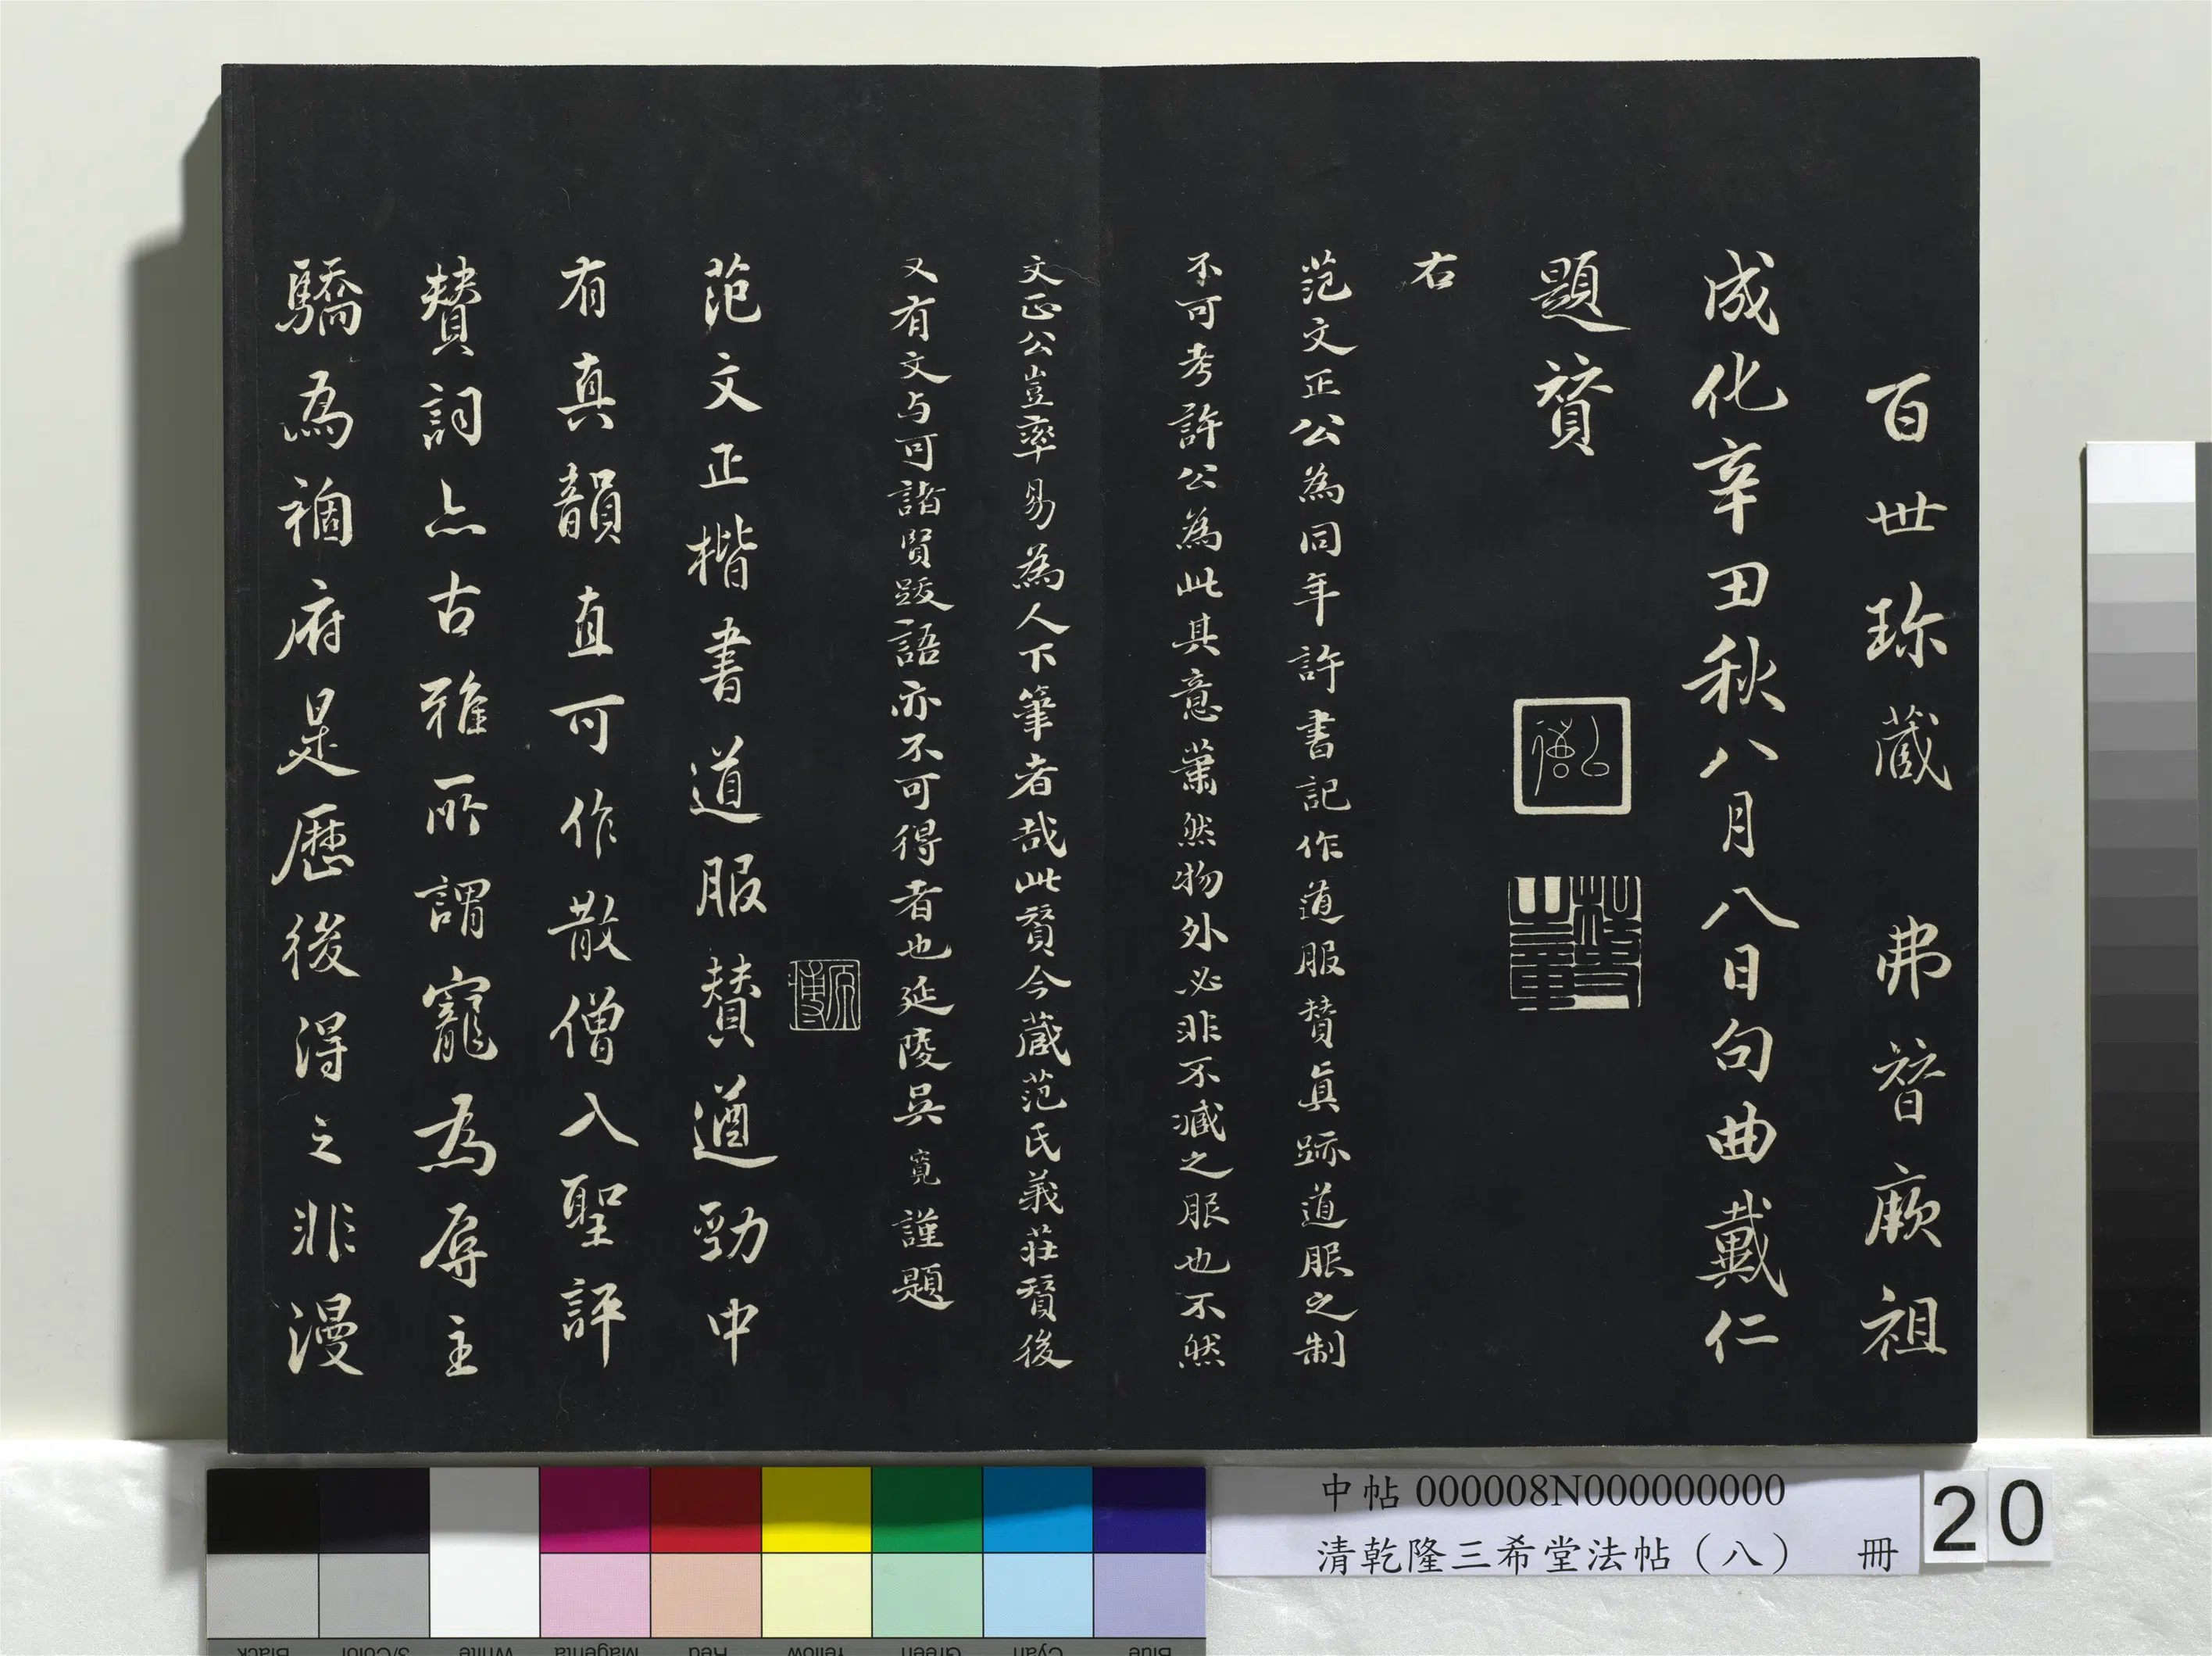 百世珎蔵 弗替厥祖
成化辛丑秋八月八日句曲戴仁
題賛
右
范文正公為同年許書記作道服賛真跡道服之制
不可考許公為此其意蕭然物外必非不臧之服也不然
文正公豈率易為人下筆者哉此賛今蔵范氏義莊賛後
又有文与可諸賢跋語亦不可得者也延陵吳寬謹題
原博
范文正楷書道服賛遒勁中
有真韻直可作散僧入聖評
賛詞亦古雅所謂寵為辱主
驕為禍府是歷後得之非漫
中帖 000008N000000000
清乾隆三希堂法帖（八） 冊
20
Black
3/Color
White
Magenta
Red
Yellow
Green
Cyan
Blue